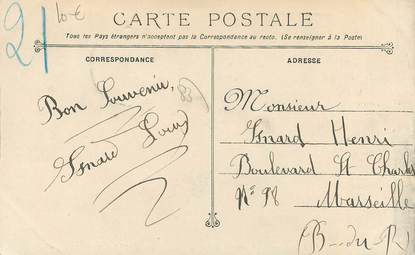 21
10€
CARTE POSTALE
Tous les Pays étrangers n'acceptent pas la Correspondance au recto. (Se renseigner à la Poste)
CORRESPONDANCE
ADRESSE
Bon Souvenir,
Isnard
Monsieur
Isnard Henri
Boulevard St Charles
N° 98 Marseille
(B-du-R)